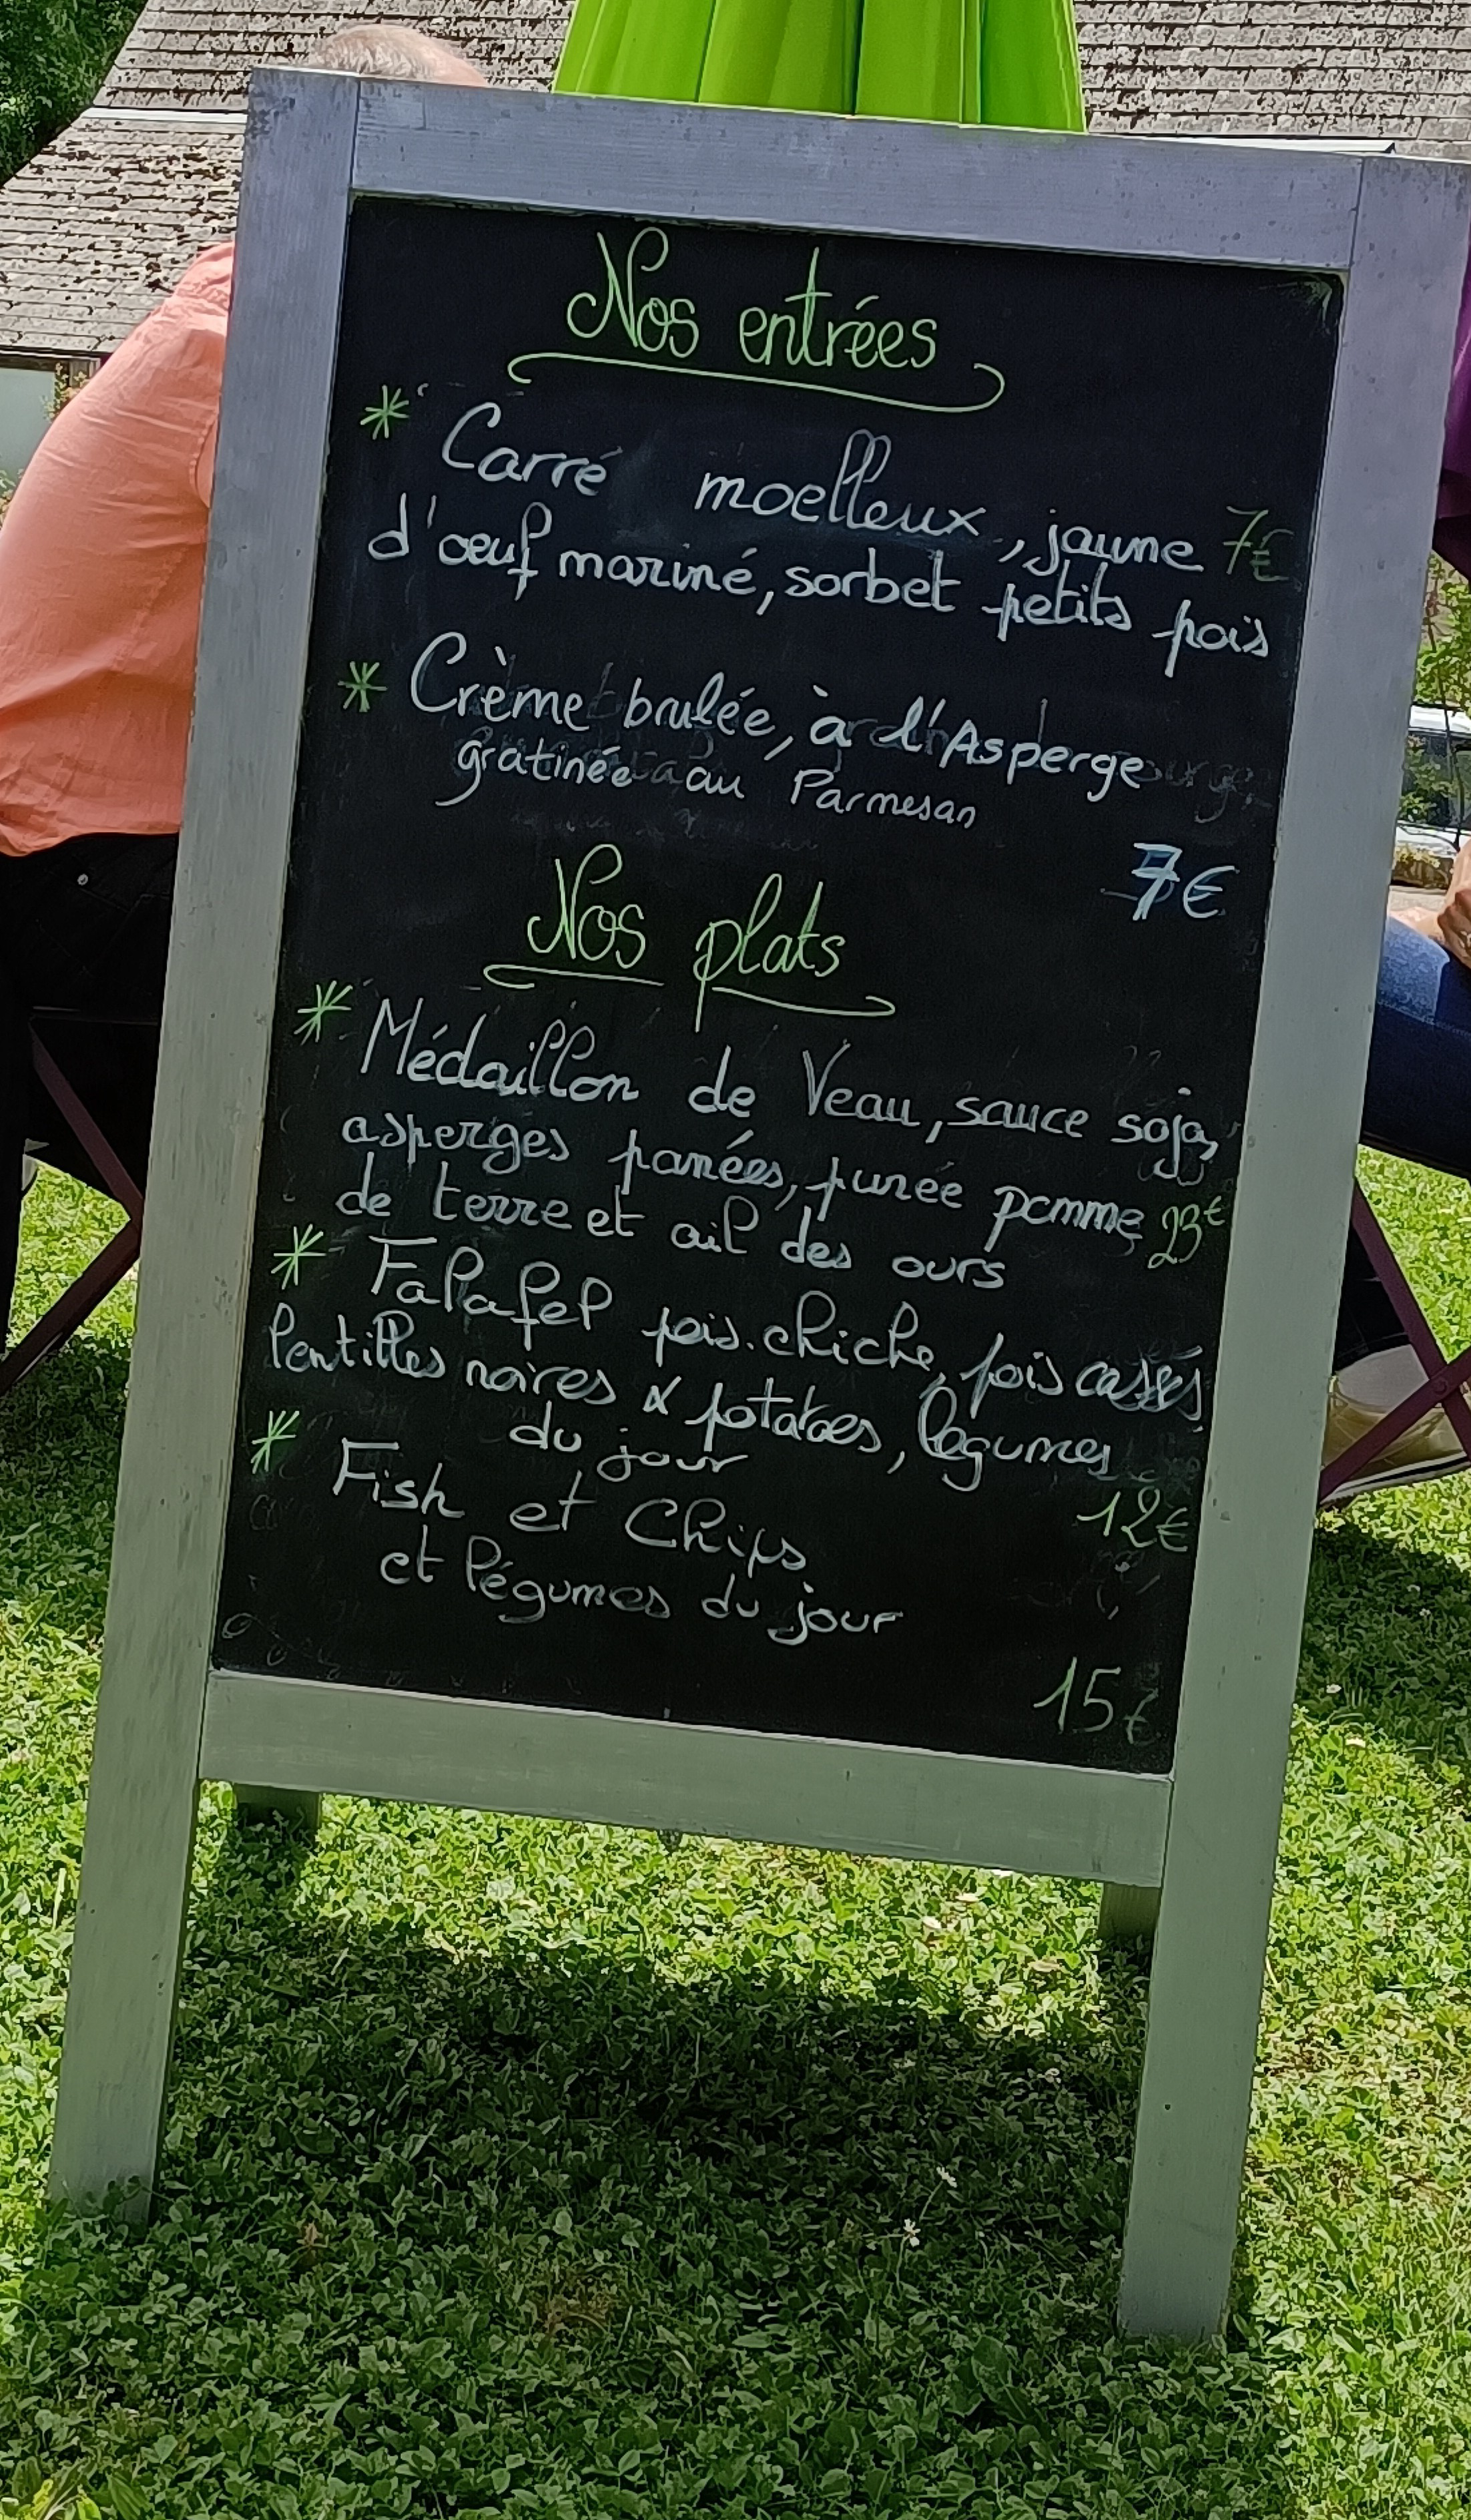 Nos entrées
* Carré moelleux, jaune 7€
d'œuf mariné, sorbet petits pois
* Crème brulée, à l'Asperge
gratinée au Parmesan
7€
Nos plats
* Médaillon de Veau, sauce soja,
asperges panées, purée pomme 23€
de terre et ail des ours
* Falafel pois.chiche, pois cassés
lentilles noires & potatoes, légumes
du jour
12€
* Fish et Chips
et légumes du jour
15€